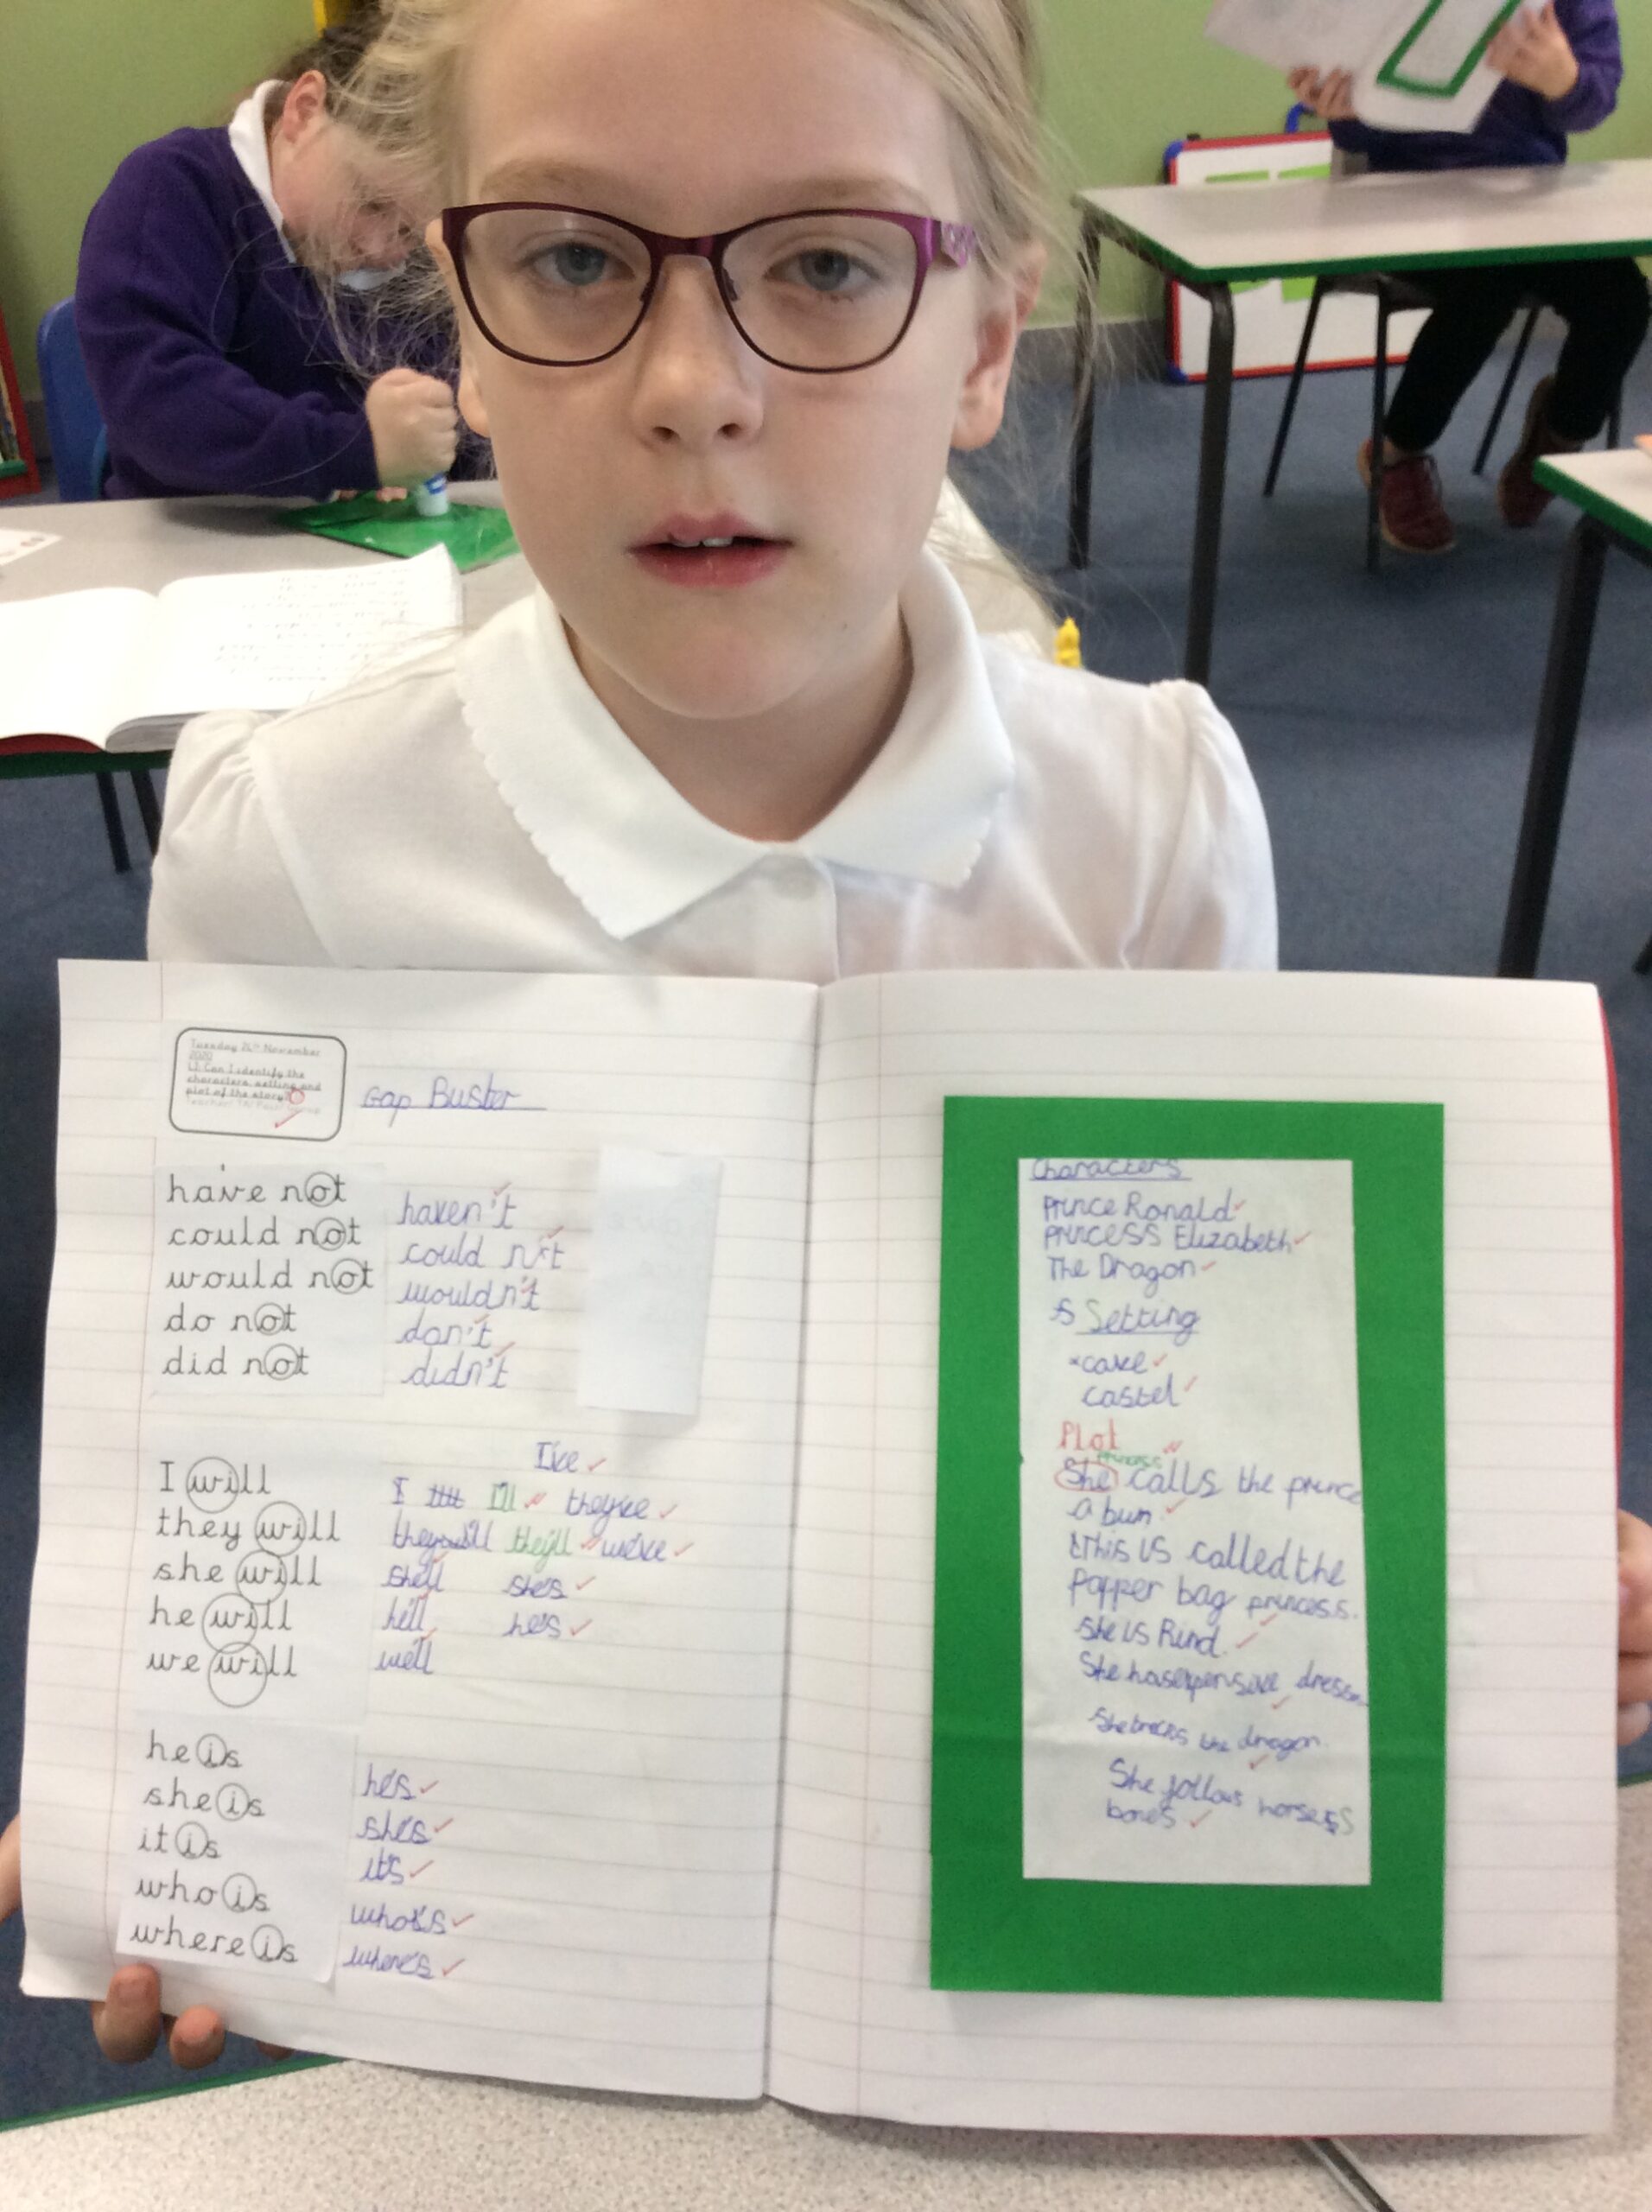 Tuesday 24th November
2020
LI: Can I identify the
characters, setting and
plot of the story?
Gap Buster
have not
could not
would not
do not
did not
haven't
could n't
wouldn't
don't
didn't
I will
they will
she will
he will
we will
I've
I I'll they've
they'll we've
she'll she's
he'll he's
we'll
he is
she is
it is
who is
where is
he's
she's
it's
who's
where's
Characters
Prince Ronald
Princess Elizabeth
The Dragon
Setting
cave
castel
Plot
princess
She calls the prince
a bum
this is called the
papper bag princess.
She is Rind.
She has expensive
She tricks the dragon.
She follows horses
bones